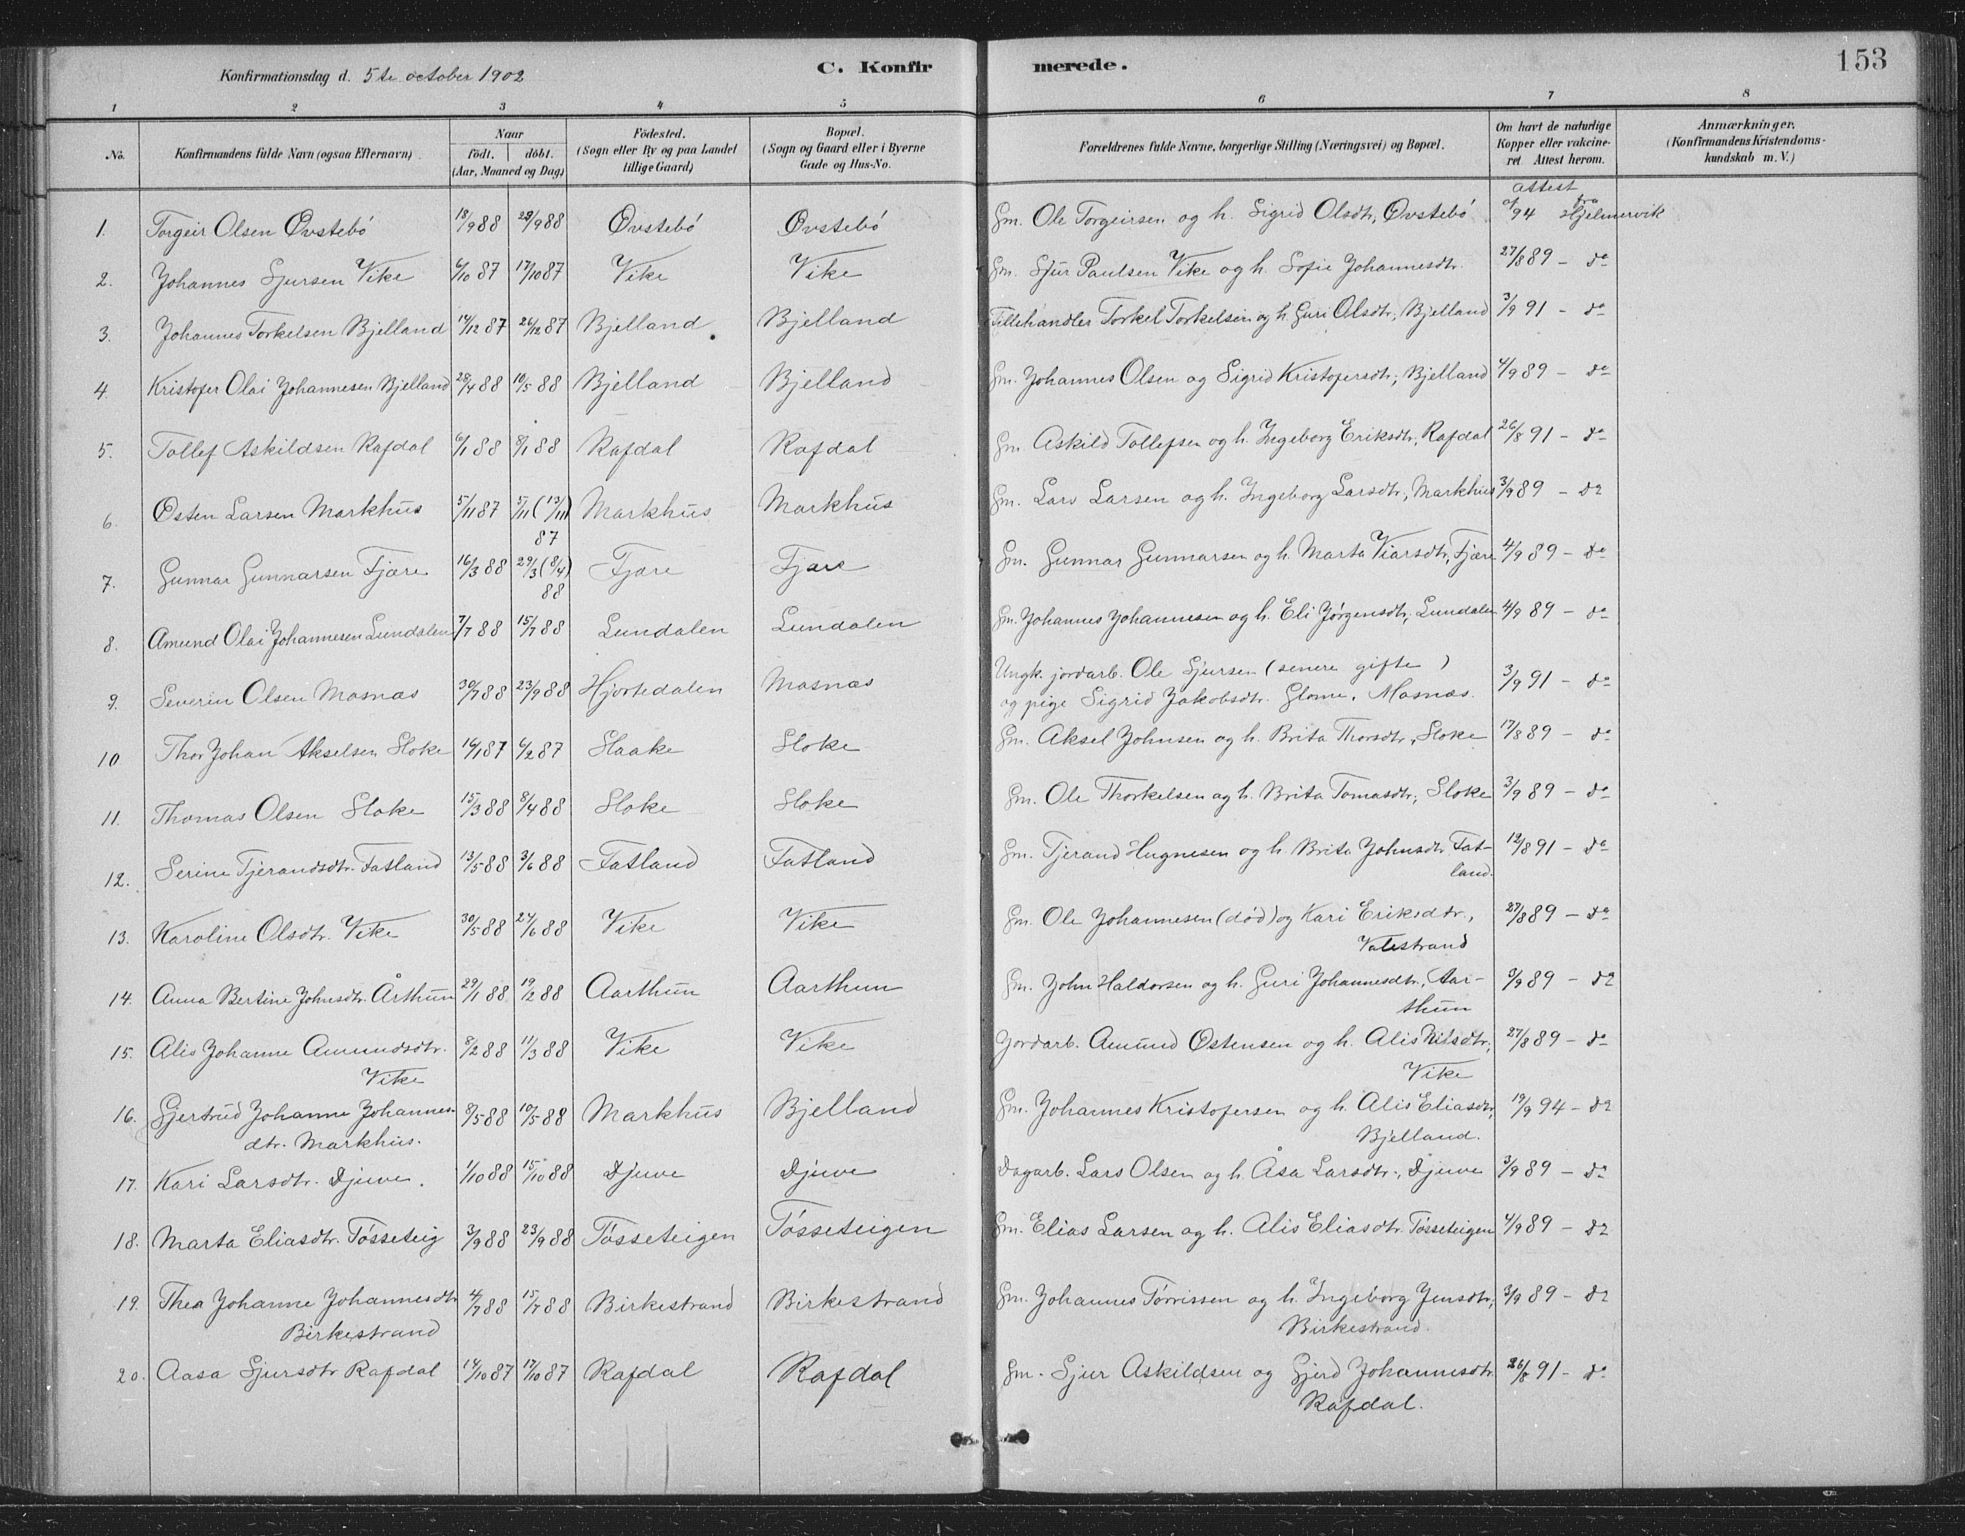 Konfirmationsdag d. 5te october 1902 C. Konfirmerede. 153
1 2 3 4 5 6 7 8
No. Konfirmandens fulde Navn (ogsaa Efternavn). Naar födt. döbt. (Aar, Maaned og Dag) Födested. (Sogn eller By og paa Landet tillige Gaard) Bopæl. (Sogn og Gaard eller i Byerne Gade og Hus-No. Forældrenes fulde Navne, borgerlige Stilling (Næringsvei) og Bopæl. Om havt de naturlige Kopper eller vakcineret. Attest herom. Anmærkninger. (Konfirmandens Kristendomskundskab m. V.)
attest
1. Torgeir Olsen Øvstebö 18/9 88 23/9 88 Øvstebö Øvstebö Gm. Ole Torgeirsen og h. Sigrid Olsdt, Øvstebö 94 fra Hjelmervik
2. Johannes Sjursen Vike 6/10 87 17/10 87 Vike Vike Gm. Sjur Paulsen Vike og h. Sofie Johannesdtr. 27/8 89 - do
3. Johannes Torkelsen Bjelland 14/12 87 26/12 87 Bjelland Bjelland Fillehandler Torkel Torkelsen og h. Guri Olsdtr, Bjelland 3/9 91 - do
4. Kristofer Olai Johannesen Bjelland 28/4 88 10/5 88 Bjelland Bjelland Gm. Johannes Olsen og Sigrid Kristofersdtr, Bjelland 4/9 89 - do
5. Tollef Askildsen Rafdal 6/1 88 8/1 88 Rafdal Rafdal Gm. Askild Tollefsen og h. Ingeborg Eriksdtr, Rafdal 26/8 91 - do
6. Østen Larsen Markhus 5/11 87 5/11 (13/11) 87 Markhus Markhus Gm. Lars Larsen og h. Ingeborg Larsdtr, Markhus 3/9 89 - do
7. Gunnar Gunnarsen Fjære 16/3 88 29/3 (8/4) 88 Fjære Fjære Gm. Gunnar Gunnarsen og h. Marta Viarsdtr, Fjære 4/9 89 - do
8. Amund Olai Johannesen Lundalen 7/7 88 15/7 88 Lundalen Lundalen Gm. Johannes Johannesen og h. Eli Jørgensdtr, Lundalen 4/9 89 - do
9. Severin Olsen Mosnæs 30/7 88 23/9 88 Hjortedalen Mosnæs Ungk. jordarb. Ole Sjursen (senere gifte)
og pige Sigrid Jakobsdtr. Glome, Mosnæs. 3/9 91 - do
10 Thor Johan Akselsen Sloke 14/1 87 6/2 87 Slaake Sloke Gm. Aksel Johnsen og h. Brita Thorsdtr, Sloke 17/8 89 - do
11. Thomas Olsen Sloke 15/3 88 8/4 88 Sloke Sloke Gm. Ole Thorkelsen og h. Brita Tomasdtr, Sloke 3/9 89 - do
12. Serine Tjerandsdtr. Fatland 13/5 88 3/6 88 Fatland Fatland Gm. Tjerand Hugnesen og h. Brita Johnsdtr Fat-
land. 12/8 91 - do
13. Karoline Olsdtr. Vike 30/5 88 24/6 88 Vike Vike Gm. Ole Johannesen (død) og Kari Eriksdtr,
Valestrand 27/8 89 - do
14. Anna Bertine Johnsdtr. Årthun 29/1 88 19/2 88 Aarthun Aarthun Gm. John Haldorsen og h. Guri Johannesdtr, Aar-
thun 3/9 89 - do
15. Alis Johanne Amundsdtr.
Vike 8/2 88 11/3 88 Vike Vike Jordarb. Amund Østensen og h. Alis Nilsdtr,
Vike 27/8 89 - do
16. Gjertrud Johanne Johannes-
dtr. Markhus. 8/5 88 10/5 88 Markhus Bjelland Gm. Johannes Kristofersen og h. Alis Eliasdtr,
Bjelland. 19/9 94 - do
17. Kari Larsdtr. Djuve. 1/10 88 15/10 88 Djuve Djuve Dagarb. Lars Olsen og h. Åsa Larsdtr, Djuve 3/9 89 - do
18. Marta Eliasdtr. Tösseteig 3/9 88 23/9 88 Tösseteigen Tösseteigen Gm. Elias Larsen og h. Alis Eliasdtr. Tösseteigen 4/9 89 - do
19. Thea Johanne Johannesdtr
Birkestrand 4/7 88 15/7 88 Birkestrand Birkestrand Gm. Johannes Törrissen og h. Ingeborg Jensdtr,
Birkestrand. 3/9 89 - do
20. Aasa Sjursdtr Rafdal 14/10 87 17/10 87 Rafdal Rafdal Gm. Sjur Askildsen og Gjerd Johannesdtr
Rafdal. 26/8 91 - do